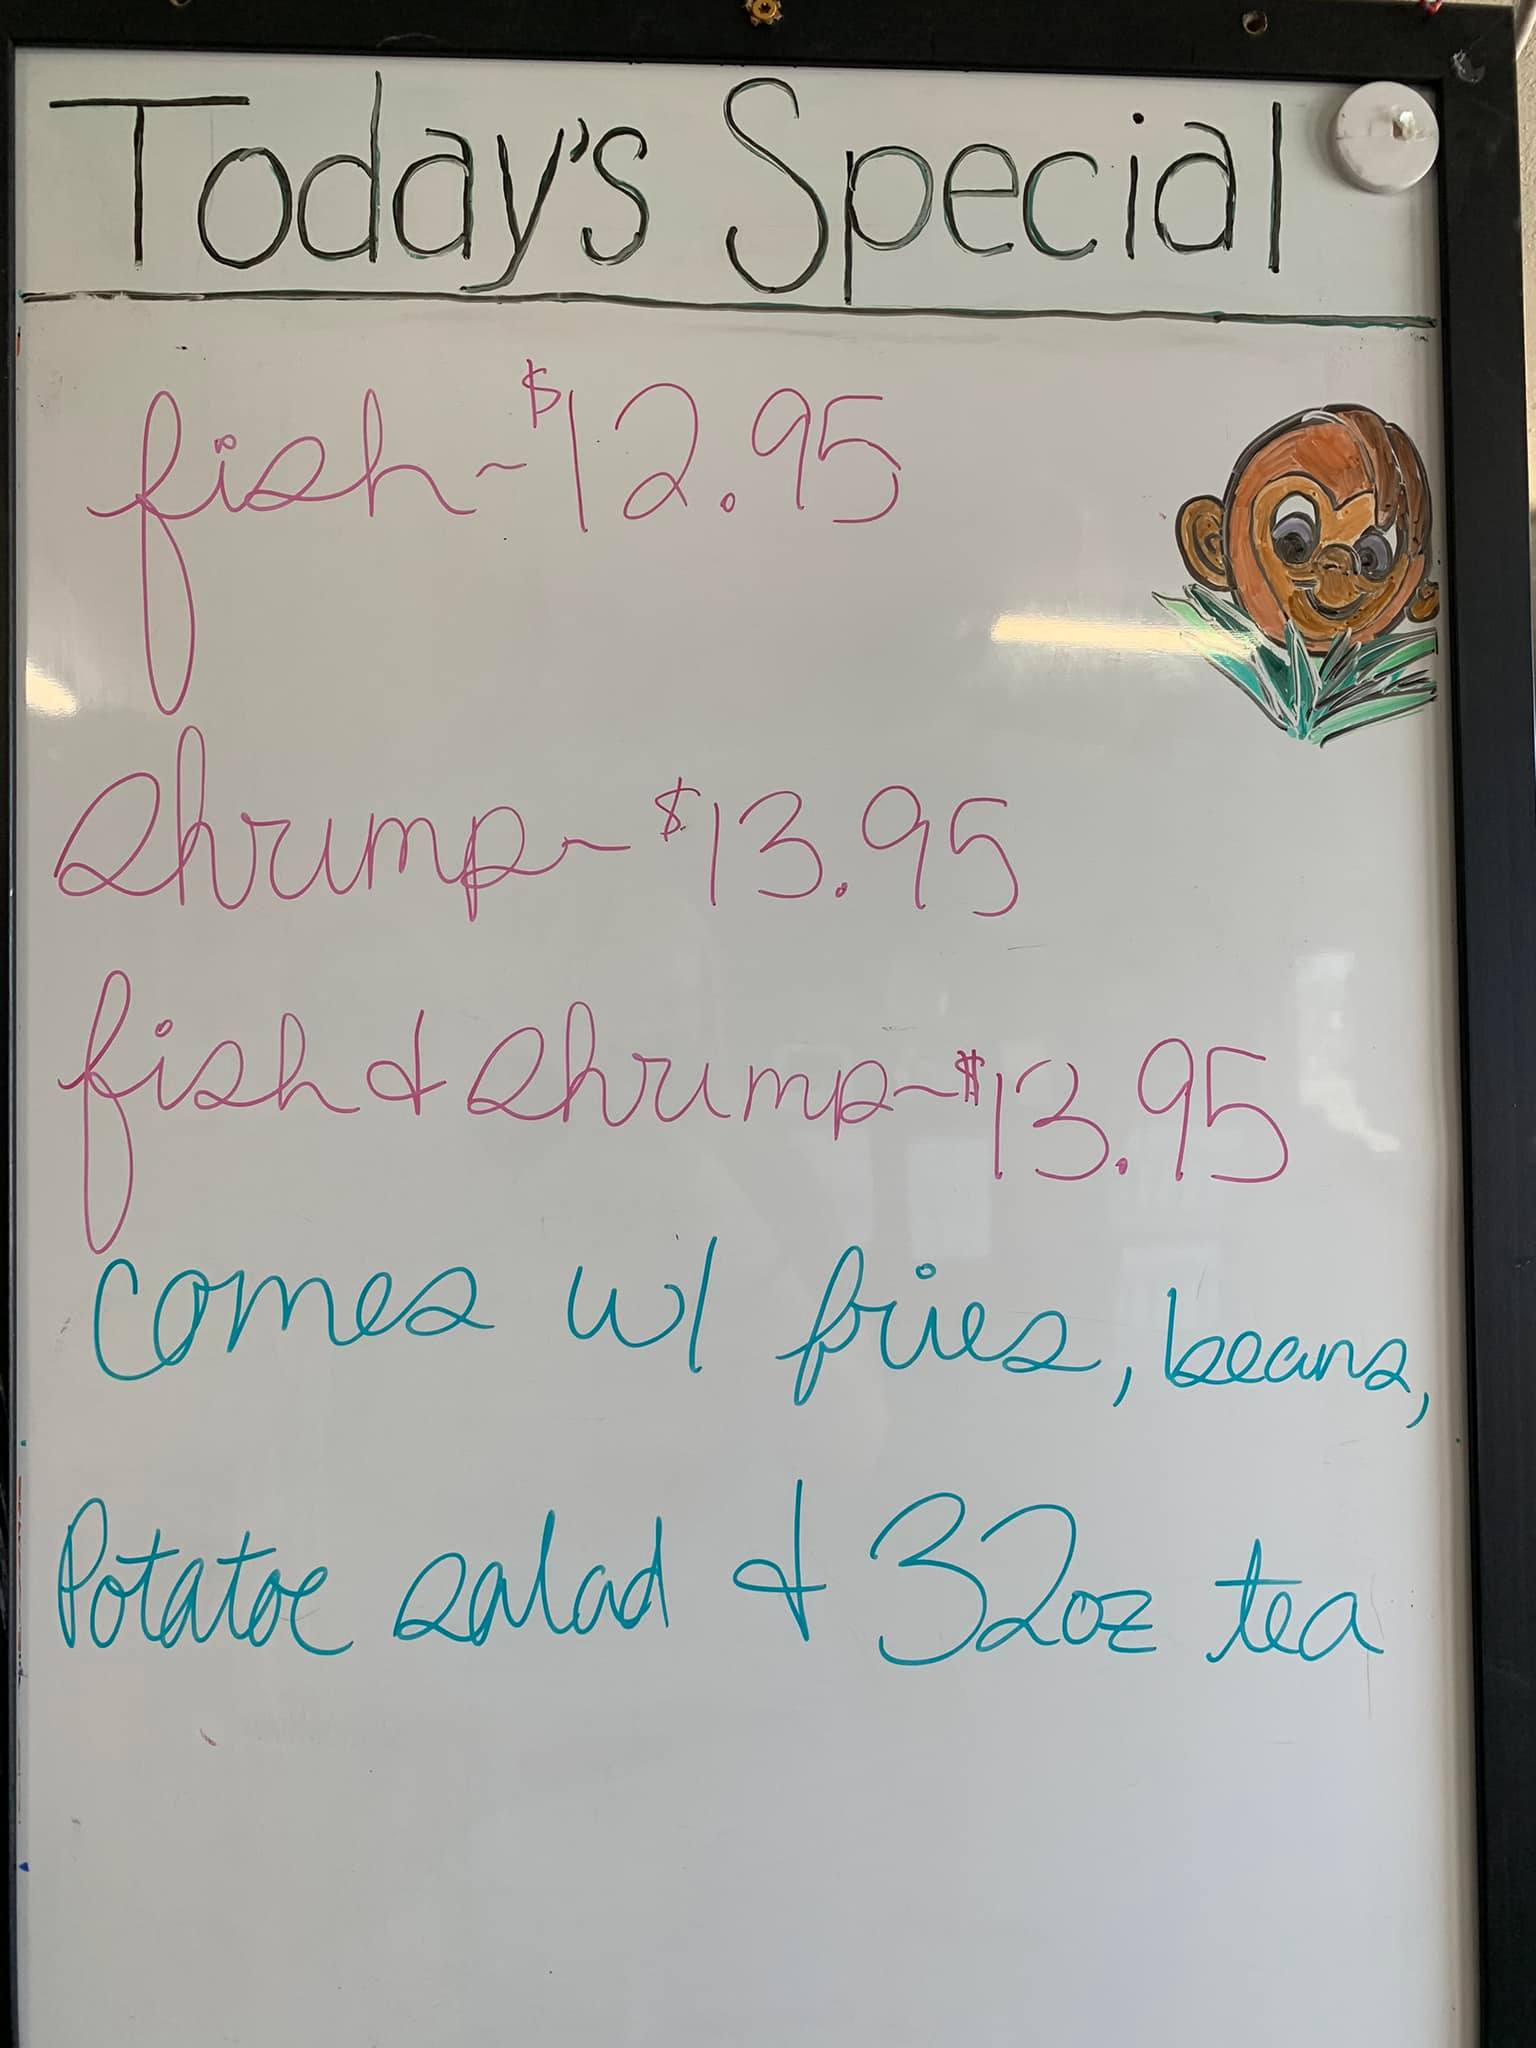 Today's Special
fish ~ $12.95
shrimp ~ $13.95
fish & shrimp ~ $13.95
comes w/ fries, beans,
Potatoe salad & 32oz tea